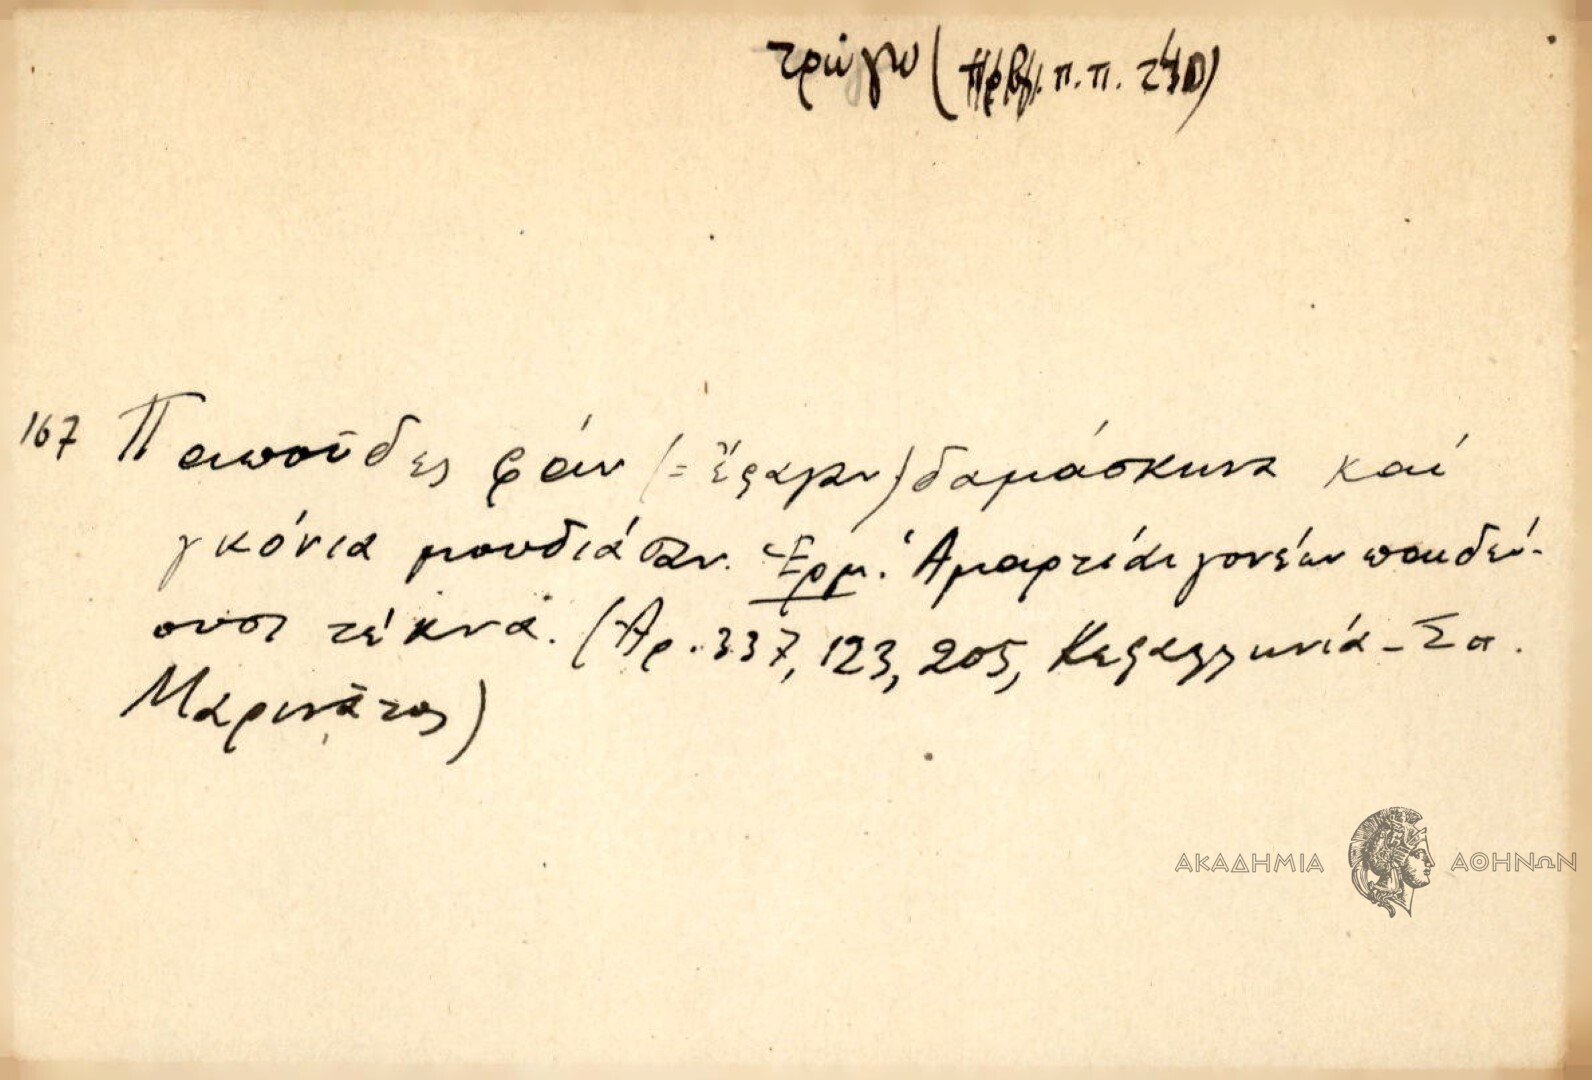 τρώγω (π.π.
167 Παπποῦδες φᾶν (= ἔφαγαν) δαμάσκηνα καί
γκόνια μουδιάσαν. Ἑρμ. Ἁμαρτίαι γονέων παιδεύ-
ουσι τέκνα. (Ἀρ. 337, 123, 205, Κεφαλληνιά - Σπ.
Μαρινᾶτος)
ΑΚΑΔΗΜΙΑ ΑΘΗΝΩΝ